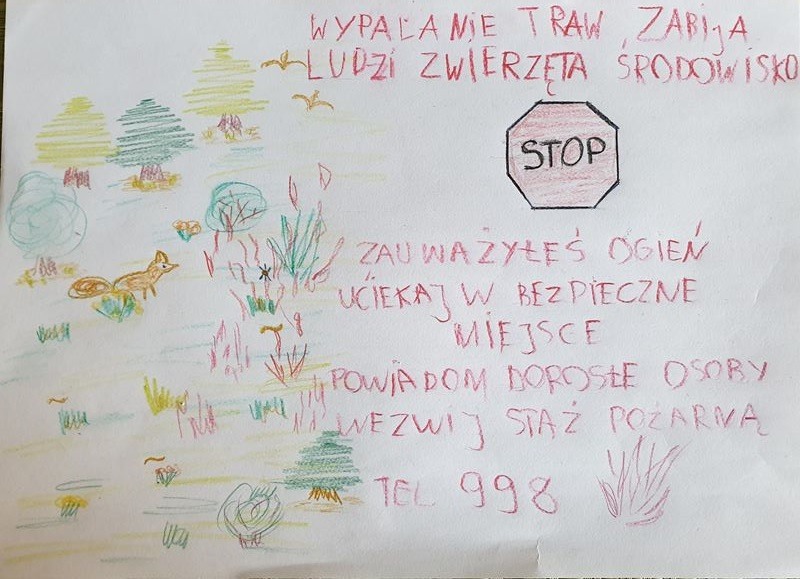 WYPALANIE TRAW ZABIJA
LUDZI ZWIERZĘTA ŚRODOWISKO
STOP
ZAUWAŻYŁEŚ OGIEŃ
UCIEKAJ W BEZPIECZNE
MIEJSCE
POWIADOM DOROSŁE OSOBY
WEZWIJ STAŻ POŻARNĄ
TEL 998